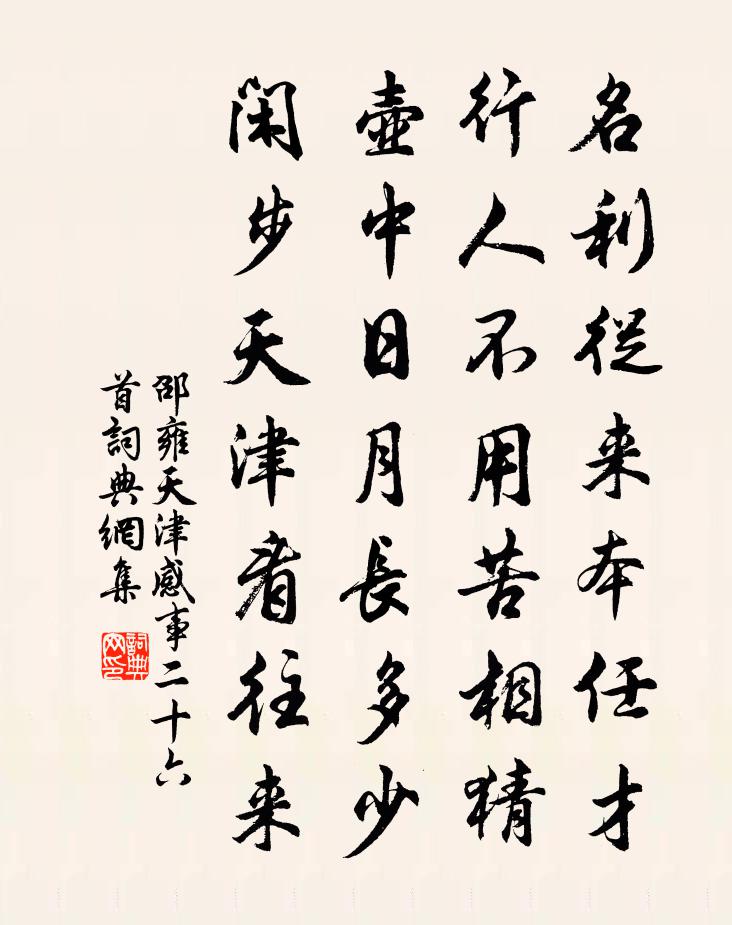 名利從来本任才
行人不用苦相猜
壺中日月長多少
閑步天津看往来
邵雍天津感事二十六
首詞典網集
詞典
网印